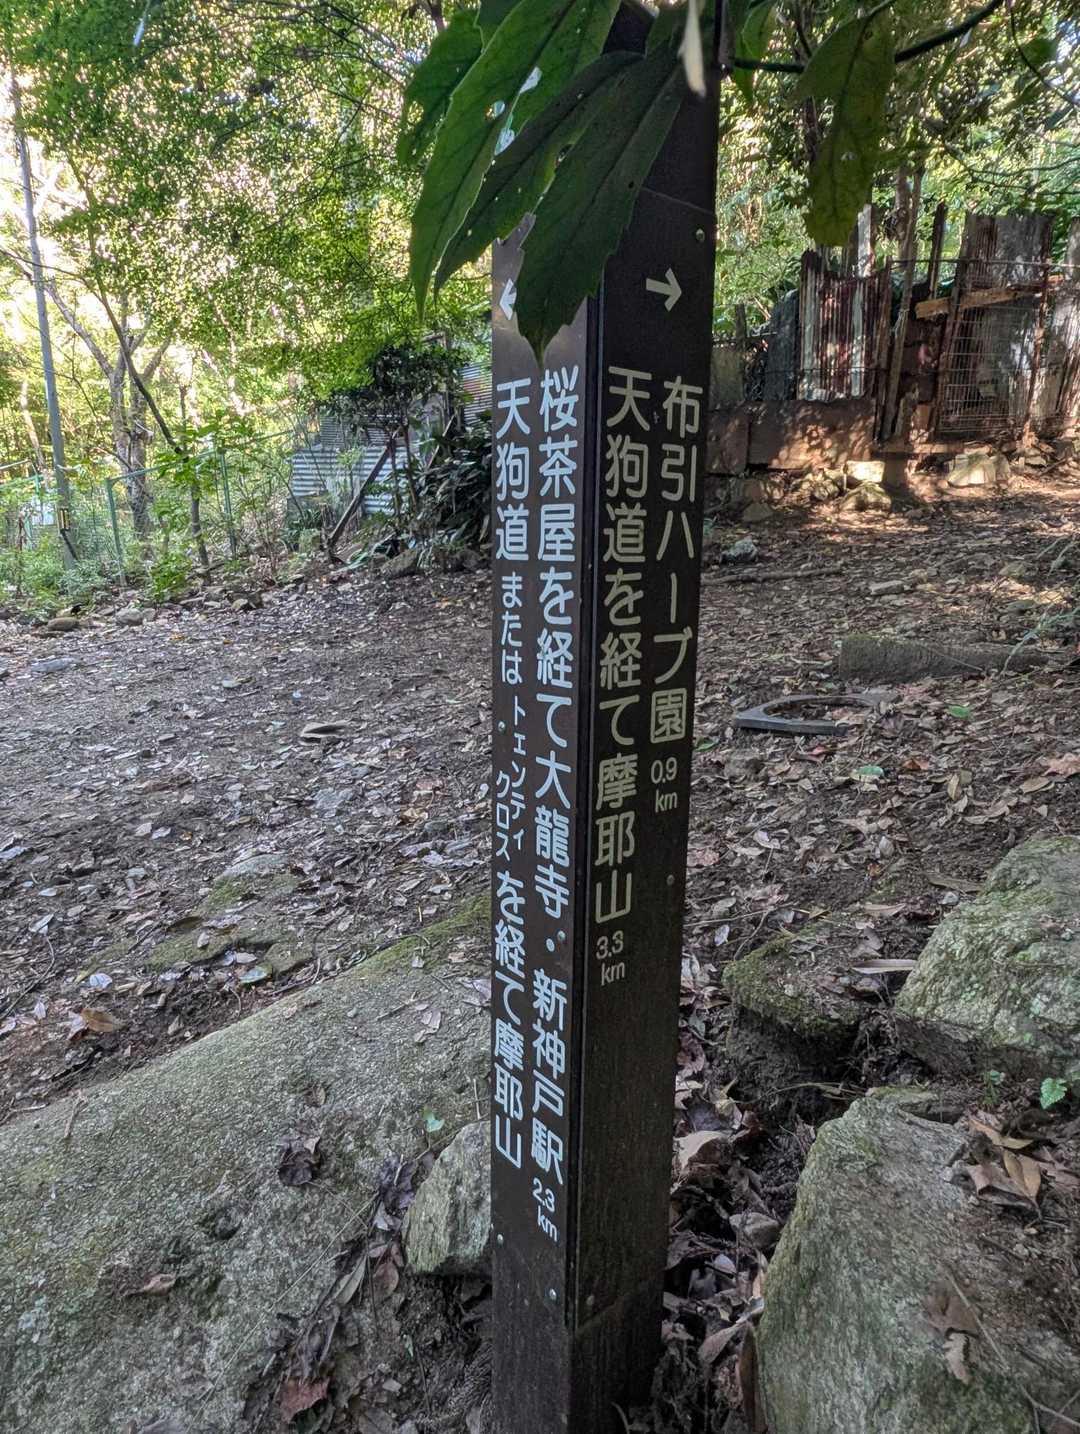 ←
桜茶屋を経て大龍寺・新神戸駅 2.3 km
天狗道 または トェンティ クロス を経て摩耶山
→
布引ハーブ園 0.9 km
天狗道を経て摩耶山 3.3 km